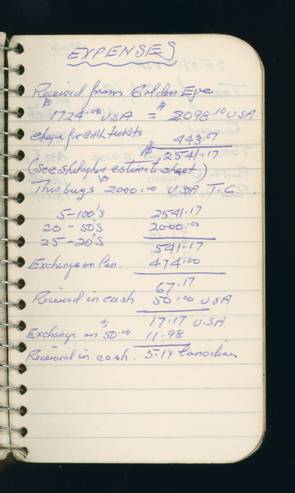 EXPENSES
Received from Golden Eye
$1724.00 USA = $2098.10 USA
443.07
$2541.17
(See estimate sheet)
This buys $2000.00 USA T.C.
5-100's 2541.17
20-50's 2000.00
25-20's 541.17
Exchange on 474.00
67.17
Received in cash 50.00 USA
17.17 USA
Exchange on $50.00 11.98
Received in cash. 5.19 Canadian